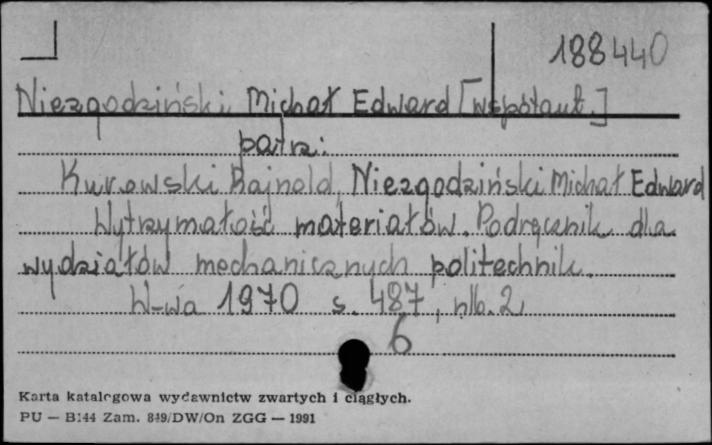 188440
Niezgodziński Michał Edward [współaut.]
patrz:
Kurowski Rajnold, Niezgodziński Michał Edward
Wytrzymałość materiałów. Podręcznik dla
wydziałów mechanicznych politechnik.
W-wa 1970 s. 487, nlb. 2
6
Karta katalogowa wydawnictw zwartych i ciągłych.
PU — B144 Zam. 849/DW/On ZGG — 1991